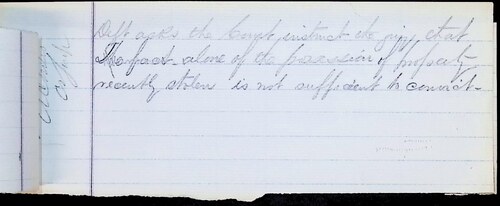 Deft asks the Court instruct the jury that
The fact alone of the possession of property
recently stolen is not sufficient to convict-